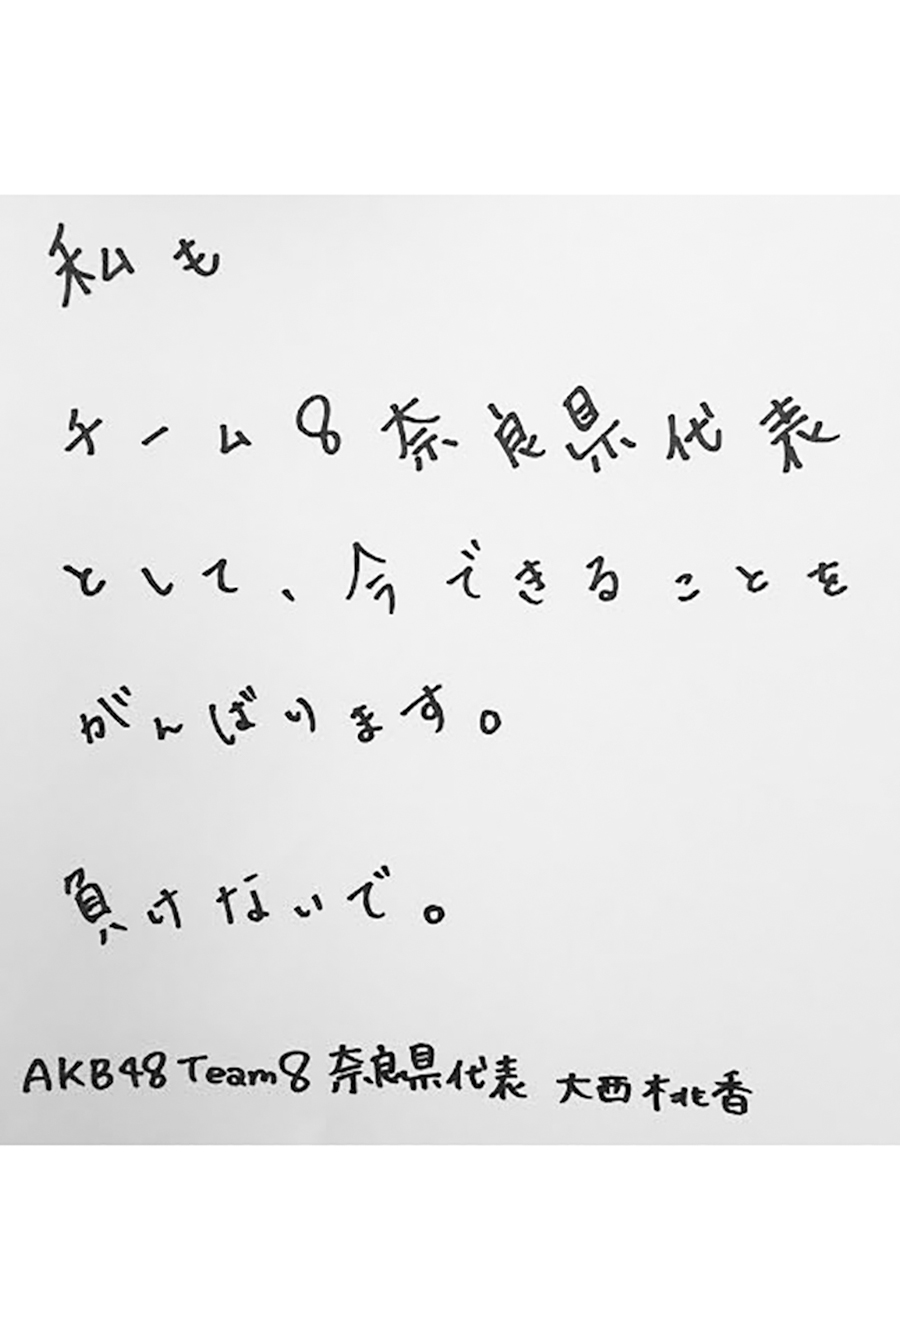 私も
チーム8奈良県代表
として、今できることを
がんばります。
負けないで。
AKB48 Team8 奈良県代表 大西桃香